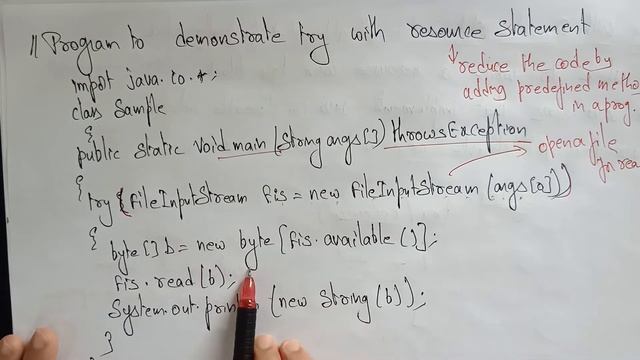 // Program to demonstrate try with resource statement
reduce the code by
adding predefined metho
in a prog.
import java.io.*;
class Sample
{
public static void main (String args[]) throws Exception
open a file
In rea
{ try (fileInputStream fis = new fileInputStream (args[0]))
{ byte[] b = new byte [fis.available ()];
fis.read (b);
System.out. (new String (b));
}